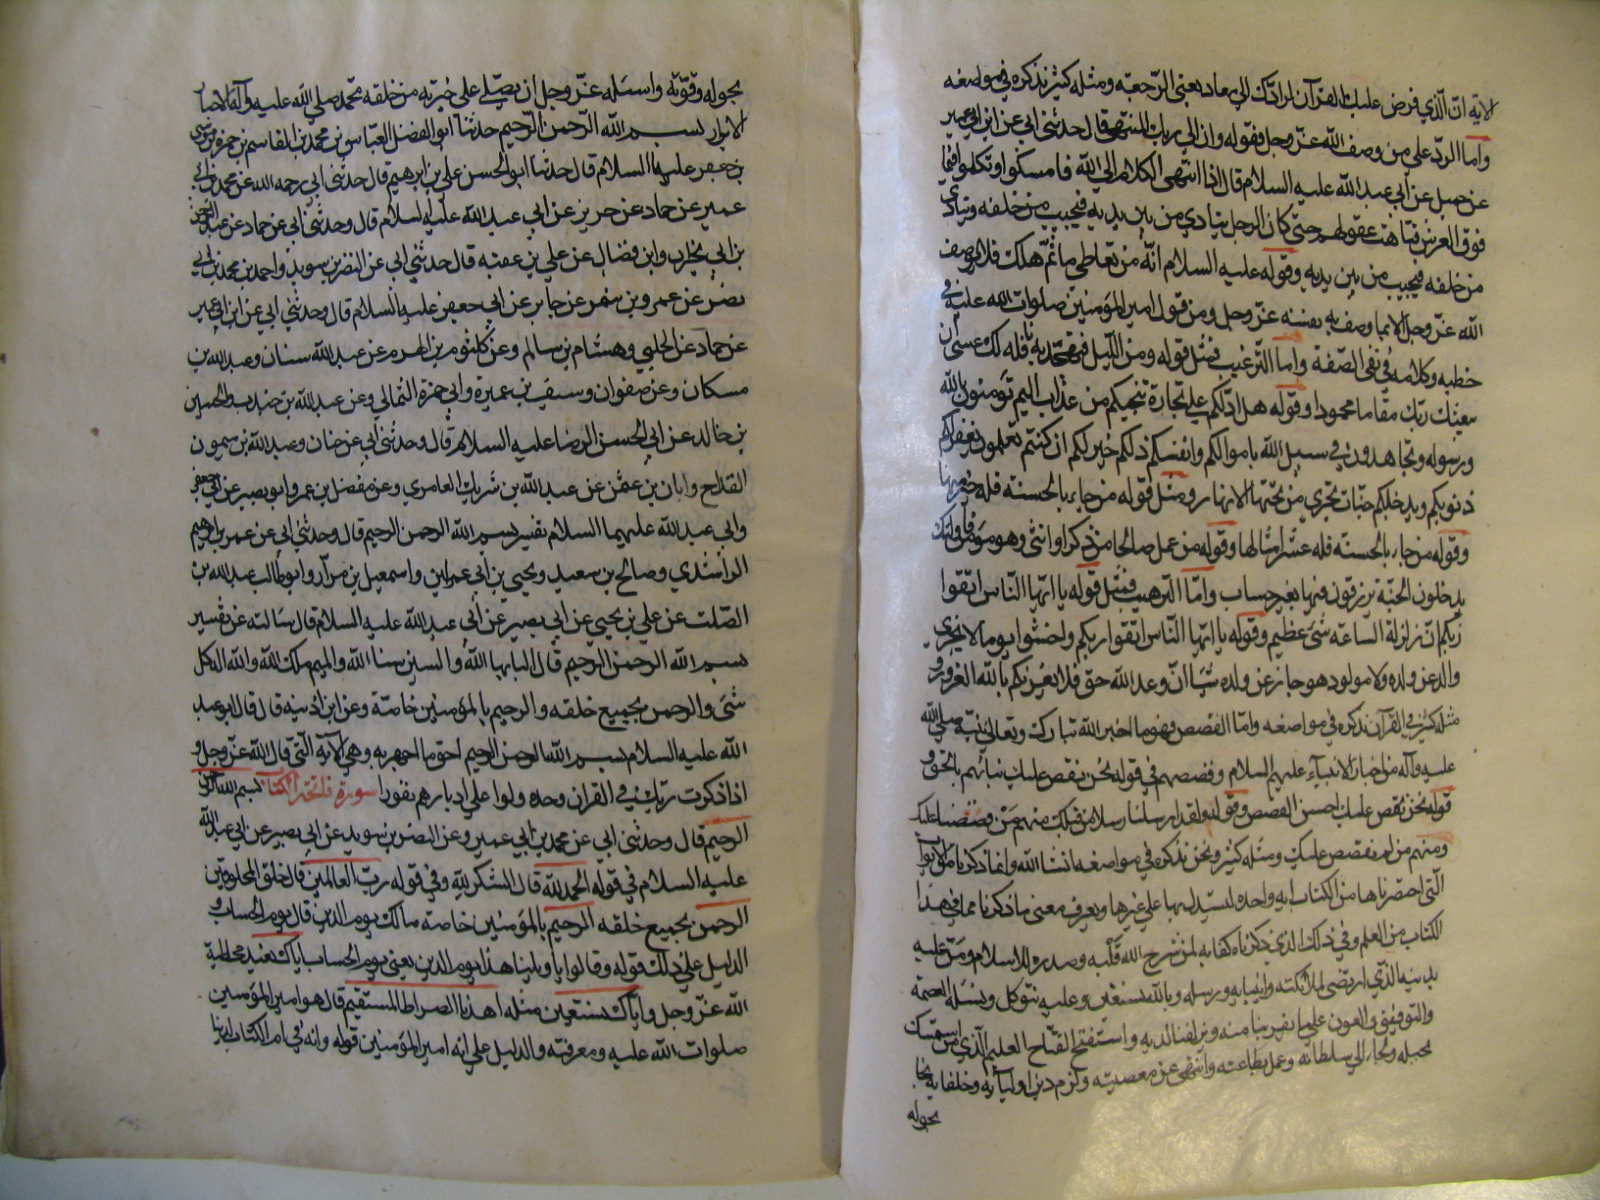 الاية ان الذي فرض عليك القرآن لرادك الى معاد يعنى الرجعة ومثله كثير نذكره في مواضعه
واما الرد على من وصف الله عز وجل فقوله وان الى ربك المنتهى قال حدثنى ابى عن ابن ابى عمير
عن جميل عن ابي عبد الله عليه السلام قال اذا انتهى الكلام الى الله فامسكوا وتكلموا فيما
فوق العرش فتاهت عقولهم حتى كان الرجل ينادي من بين يديه فيجيب من خلفه وينادي
من خلفه فيجيب من بين يديه وقوله عليه السلام انه من تعاطى ماثم هلك فلا يوصف
الله عز وجل الا بما وصف به نفسه عز وجل ومن قول امير المؤمنين صلوات الله عليه في
خطبه وكلامه في نفى الصفة واما الترغيب فمثل قوله ومن الليل فتهجد به نافلة لك عسى ان
يبعثك ربك مقاما محمودا وقوله هل ادلكم على تجارة تنجيكم من عذاب اليم تؤمنون بالله
ورسوله وتجاهدون في سبيل الله باموالكم وانفسكم ذلكم خير لكم ان كنتم تعلمون يغفر لكم
ذنوبكم ويدخلكم جنات تجري من تحتها الانهار ومثل قوله من جاء بالحسنة فله خير منها
وقوله من جاء بالحسنة فله عشر امثالها وقوله من عمل صالحا من ذكر او انثى وهو مؤمن فاولئك
يدخلون الجنة يرزقون فيها بغير حساب واما الترهيب فمثل قوله يا ايها الناس اتقوا
ربكم ان زلزلة الساعة شئ عظيم وقوله يا ايها الناس اتقوا ربكم واخشوا يوما لا يجزى
والد عن ولده ولا مولود هو جاز عن ولده شيأ ان وعد الله حق فلا يغرنكم بالله الغرور و
مثله كثير في القرآن نذكره في مواضعه واما القصص فهو ما اخبر الله تبارك وتعالى نبيه صلى الله
عليه وآله من اخبار الانبياء عليهم السلام وقصصهم في قوله نحن نقص عليك نبأهم بالحق و
قوله نحن نقص عليك احسن القصص وقوله ولقد ارسلنا رسلا من قبلك منهم من قصصنا عليك
ومنهم من لم نقصص عليك ومثله كثير ونحن نذكره في مواضعه انشا الله وانما ذكرنا من الابواب
التى اختصرناها من الكتاب اية واحدة ليستدل بها على غيرها ويعرف معنى ما ذكرناه مما في هذا
الكتاب من العلم وفي ذلك الذي ذكرناه كفاية لمن شرح الله قلبه وصدره للاسلام ومن عليه
بدينه الذي ارتضى لملائكته وانبيائه ورسله وبالله نستعين وعليه نتوكل ونسئله العصمة
والتوفيق والعون على ما يقربنا منه ويزلفنا لديه واستفتح الفتاح العليم الذي من استمسك
بحبله ولجاء الى سلطانه وعمل بطاعته وانتهى عن معصيته ولزم دين اوليائه وخلفائه نجا
بحوله
بحوله وقوته واسئله عز وجل ان يصلى على خيرته من خلقه محمد صلى الله عليه وآله الاخيار
الابرار بسم الله الرحمن الرحيم حدثنا ابو الفضل العباس بن محمد بن القاسم بن حمزة بن موسى
بن جعفر عليهما السلام قال حدثنا ابو الحسن على بن ابرهيم قال حدثنى ابى رحمه الله عن محمد بن ابى
عمير عن حماد عن حريز عن ابى عبد الله عليه السلام قال وحدثنى ابى عن حماد عن عبد الرحمن
بن ابى نجران وابن فضال عن على بن عقبة قال حدثنى ابى عن النضر بن سويد واحمد بن محمد بن ابى
نصر عن عمرو بن شمر عن جابر عن ابى جعفر عليه السلام قال وحدثنى ابى عن ابن ابى عمير
عن حماد عن الحلبى وهشام بن سالم وعن كلثوم بن الهرم عن عبد الله سنان وعبد الله بن
مسكان وعن صفوان وسيف بن عميرة وابى حمزة الثمالى وعن عبد الله بن جندب والحسين
بن خالد عن ابى الحسن الرضا عليه السلام قال وحدثنى ابى عن حنان وعبد الله بن ميمون
القداح وابان بن عثمن عن عبد الله بن شريك العامري وعن مفضل بن عمر وابو بصير عن ابى جعفر
وابى عبد الله عليهما السلام تفسير بسم الله الرحمن الرحيم قال وحدثنى ابى عن عمر بن ابرهيم
الراشدي وصالح بن سعيد ويحيى بن ابى عمران واسمعيل بن مرار وابو طالب عبد الله بن
الصلت عن على بن يحيى عن ابى بصير عن ابى عبد الله عليه السلام قال سالته عن تفسير
بسم الله الرحمن الرحيم قال الباء بهاء الله والسين سناء الله والميم ملك الله والله اله كل
شئ والرحمن بجميع خلقه والرحيم بالمؤمنين خاصة وعن ابن اذنية قال قال ابو عبد
الله عليه السلام بسم الله الرحمن الرحيم احق ما اجهر به وهي الآية التى قال الله عز وجل و
اذا ذكرت ربك في القرآن وحده ولوا على ادبارهم نفورا سورة فاتحة الكتاب بسم الله الرحمن
الرحيم قال وحدثنى ابى عن محمد بن ابى عمير وعن النضر بن سويد عن ابى بصير عن ابى عبد الله
عليه السلام في قوله الحمد لله قال الشكر لله وفي قوله رب العالمين قال خلق المخلوقين
الرحمن بجميع خلقه الرحيم بالمؤمنين خاصة مالك يوم الدين قال يوم الحساب و
الدليل على ذلك قوله وقالوا يا ويلنا هذا يوم الدين يعنى يوم الحساب اياك نعبد مخاطبة
الله عز وجل واياك نستعين مثله اهدنا الصراط المستقيم قال هو امير المؤمنين
صلوات الله عليه ومعرفته والدليل على انه امير المؤمنين قوله وانه في ام الكتاب لدينا